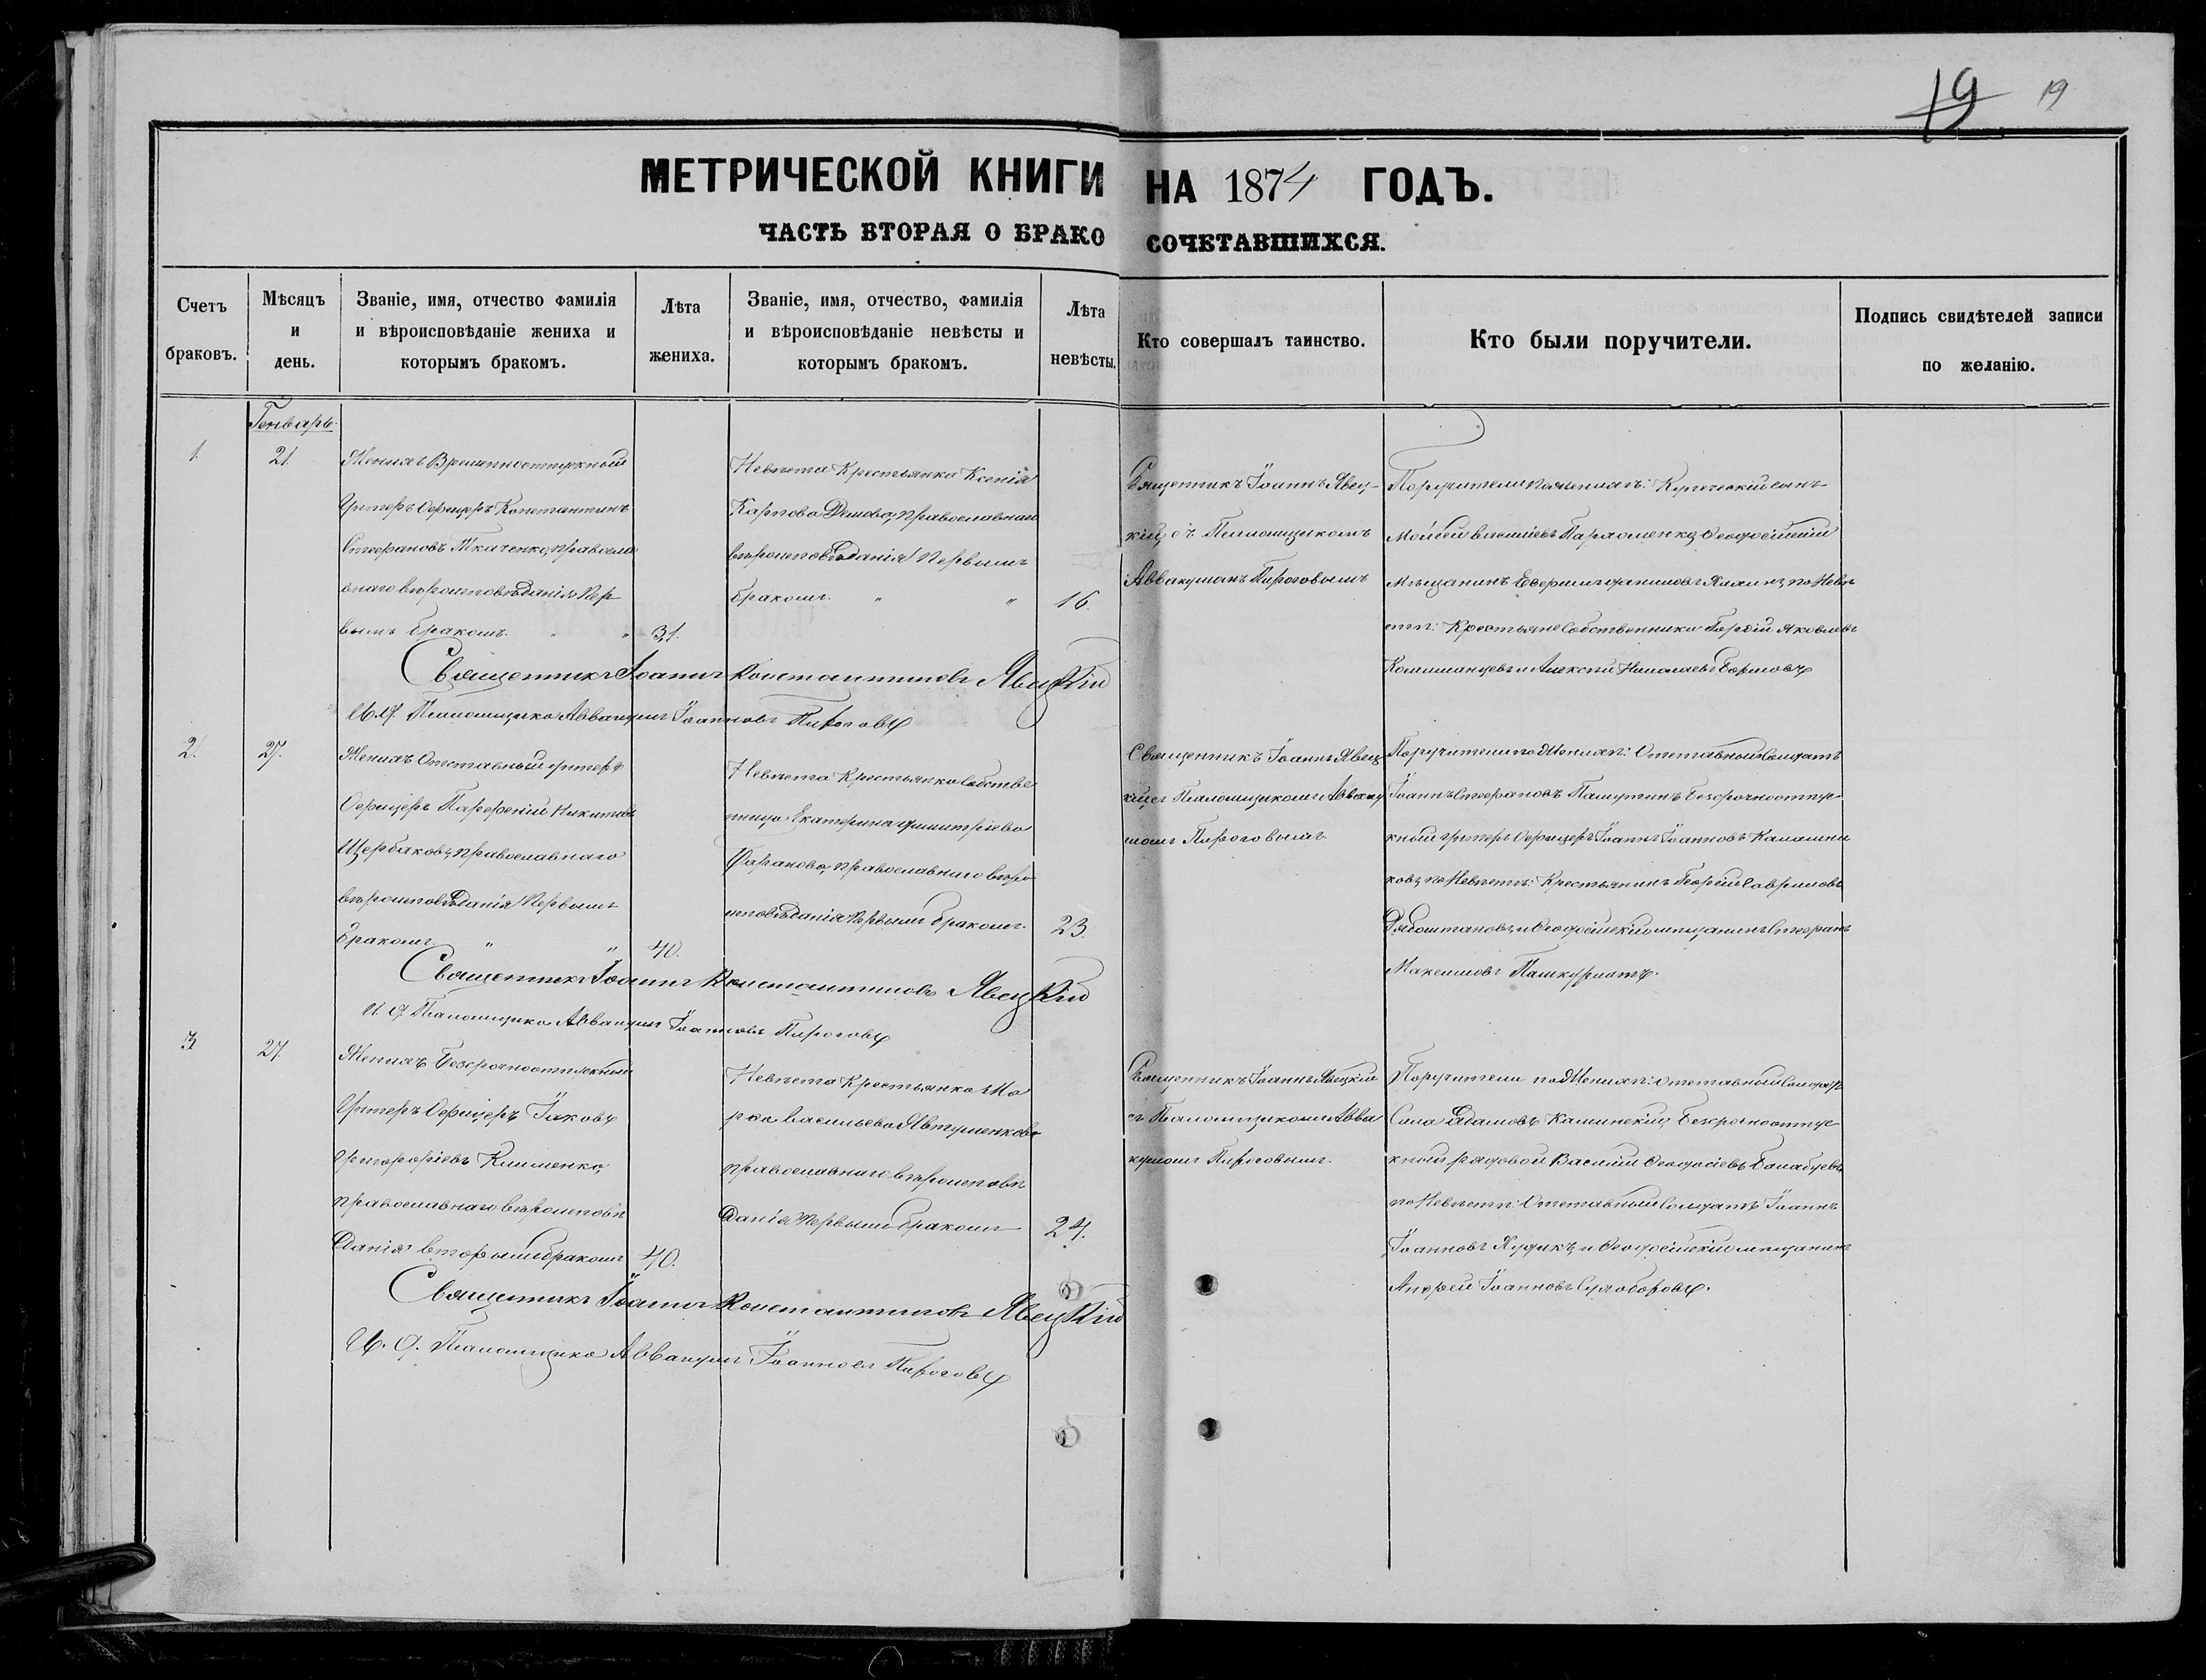 19 19
МЕТРИЧЕСКОЙ КНИГИ НА 1874 ГОДЪ.
ЧАСТЬ ВТОРАЯ О БРАКОСОЧЕТАВШИХСЯ.
Счетъ браковъ.
Мѣсяцъ и день.
Званіе, имя, отчество фамилія
и вѣроисповѣданіе жениха и
которымъ бракомъ.
Лѣта жениха.
Званіе, имя, отчество, фамилія
и вѣроисповѣданіе невѣсты и
которымъ бракомъ.
Лѣта невѣсты.
Кто совершалъ таинство.
Кто были поручители.
Подпись свидѣтелей записи
по желанію.
Генварь
1. 21.
Женихъ Временноотпускный
Унтеръ Офицеръ Константинъ
Стефановъ Ткаченко, правосла
внаго вѣроисповѣданія Пер
вымъ бракомъ. " " 31.
Невѣста Крестьянка Ксенія
Карпова, православнаго
вѣроисповѣданія Первымъ
бракомъ. " " 16.
Священникъ Іоаннъ Явец-
кій, съ Псаломщикомъ
Аввакумомъ Пироговымъ
Поручители по женихѣ: Купеческій сынъ
Мойсей Василіевъ Пархоменко, Феодосійскій
Мѣщанинъ по Невѣ
стѣ: Крестьяне Собственники Яковлевъ
и Алексѣй Николаевъ
Священникъ Іоаннъ Константиновъ Явецкій
И. Д. Псаломщика Аввакумъ Іоанновъ Пироговъ
2. 27.
Женихъ Отставный Унтеръ
Офицеръ Парфеній Никитовъ
Щербаковъ, православнаго
вѣроисповѣданія Первымъ
бракомъ. " " 40.
Невѣста Крестьянка Собстве
нница Екатерина Димитріева
православнаго вѣро
исповѣданія Первымъ бракомъ. 23.
Священникъ Іоаннъ Явец
кій съ Псаломщикомъ Авваку
момъ Пироговымъ
Поручители по Женихѣ: Отставный Солдатъ
Іоаннъ Стефановъ Безсрочноотпус
кный Унтеръ Офицеръ Іоаннъ Іоанновъ Калашни
ковъ, по Невѣстѣ: Крестьянинъ Георгій Гавриловъ
и Феодосійскій мѣщанинъ Стефанъ
Максимовъ
Священникъ Іоаннъ Константиновъ Явецкій
И. Д. Псаломщика Аввакумъ Іоанновъ Пироговъ
3. 27.
Женихъ Безсрочноотпускный
Унтеръ Офицеръ Іаковъ
Григоріевъ Клименко,
православнаго вѣроисповѣ
данія вторымъ бракомъ 40.
Невѣста Крестьянка Ма
рѳа Васильева Явтушенкова
православнаго вѣроисповѣ
данія Первымъ бракомъ 24.
Священникъ Іоаннъ Явецкій
съ Псаломщикомъ Авва
кумомъ Пироговымъ.
Поручители по Женихѣ: отставный Солдатъ
Сила Адамовъ Безсрочноотпус
кный рядовой Василій Феодосіевъ
по Невѣстѣ: Отставный Солдатъ Іоаннъ
Іоанновъ и Феодосійскій мѣщанинъ
Андрей Іоанновъ
Священникъ Іоаннъ Константиновъ Явецкій
И. Д. Псаломщика Аввакумъ Іоанновъ Пироговъ